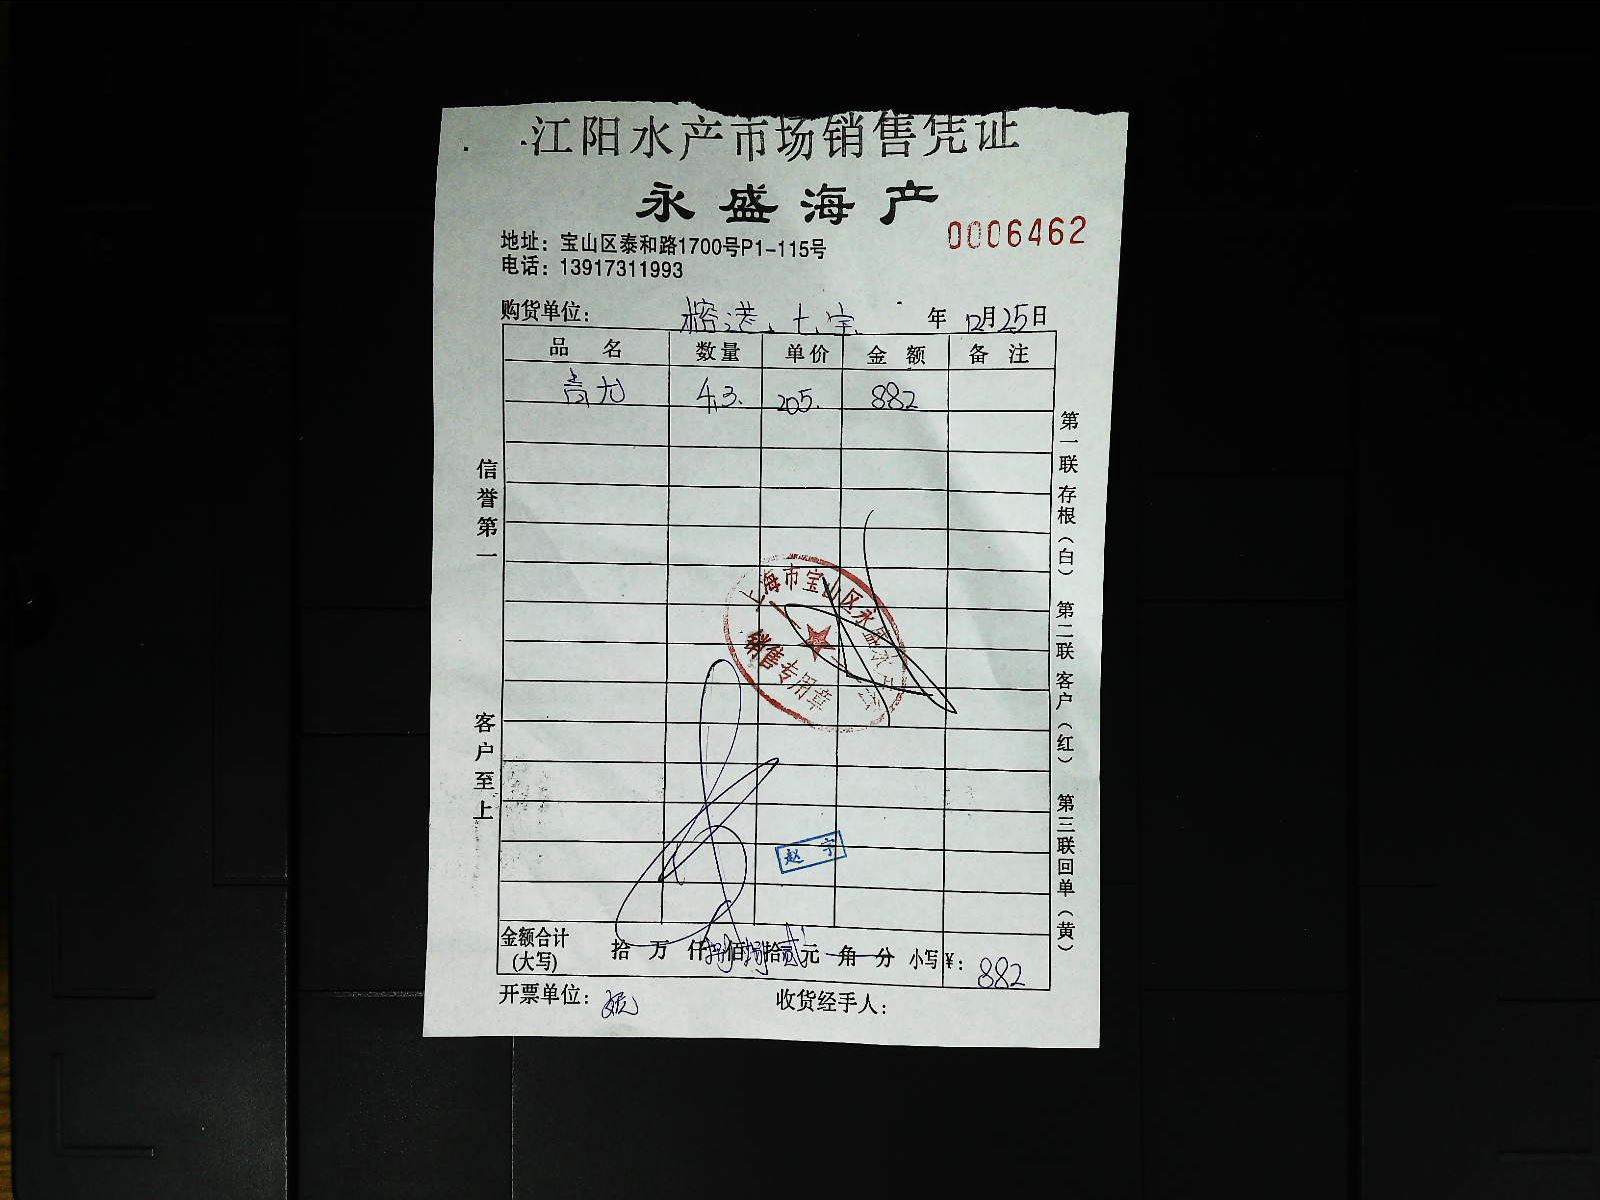 江阳水产市场销售凭证
永盛海产
0006462
地址：宝山区泰和路1700号P1-115号
电话：13917311993
购货单位： 榕港 七宝 年 12月25日
品名 数量 单价 金额 备注
青龙 4.3 205. 882
信誉第一 客户至上
第一联存根（白） 第二联客户（红） 第三联回单（黄）
上海市宝山区永盛水产
销售专用章
赵宇
金额合计(大写) 拾 万 仟捌佰捌拾贰元 角 分 小写¥：882
开票单位：
收货经手人：